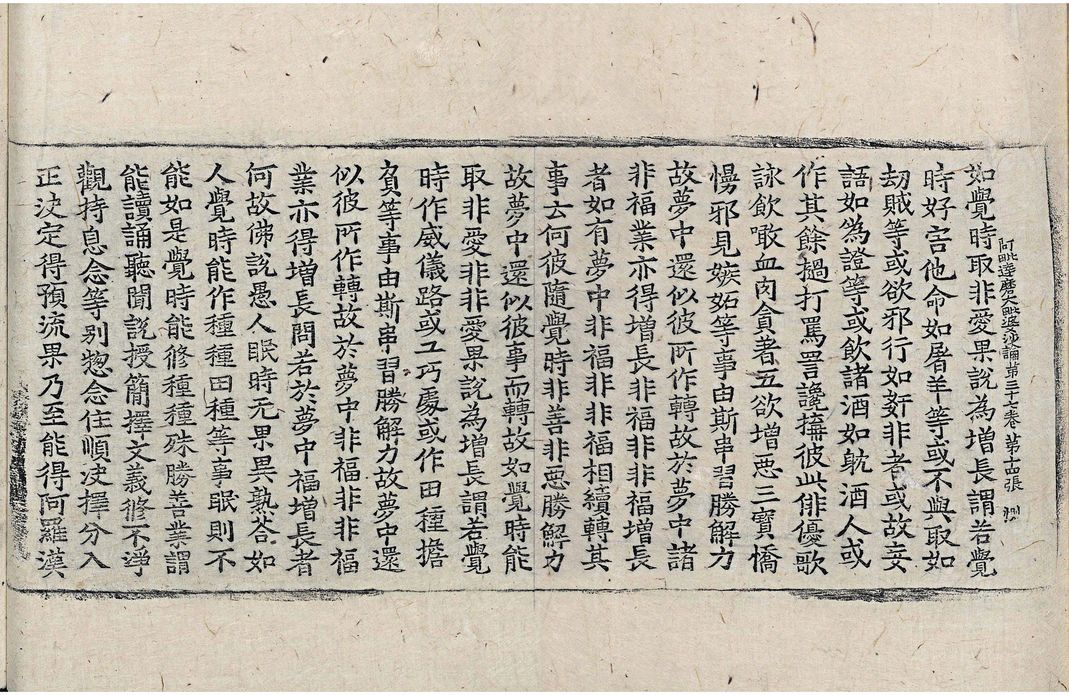 阿毗達磨大毗婆沙論第三十七卷 第十四張
如覺時取非愛果說為增長謂若覺
時好害他命如屠羊等或不與取如
劫賊等或欲邪行如姧非者或故妄
語如偽證等或飲諸酒如躭酒人或
作其餘撾打罵詈讒搆彼此俳優歌
詠飲噉血肉貪者五欲增惡三寶憍
慢邪見嫉妬等事由斯串習勝解力
故夢中還似彼所作轉故於夢中諸
非福業亦得增長非非福非非福增長
者如有夢中非福非非福相續轉其
事云何彼隨覺時非善非惡勝解力
故夢中還似彼事而轉故如覺時能
取非愛非非愛果說為增長謂若覺
時作威儀路或工巧處或作田種擔
負等事由斯串習勝解力故夢中還
似彼所作轉故於夢中非福非非福
業亦得增長問若於夢中福增長者
何故佛說愚人眠時无果異熟荅如
人覺時能作種種田種等事眠則不
能如是覺時能修種種殊勝善業謂
能讀誦聽聞說授簡擇文義修不淨
觀持息念等別惣念住順決擇分入
正決定得預流果乃至能得阿羅漢